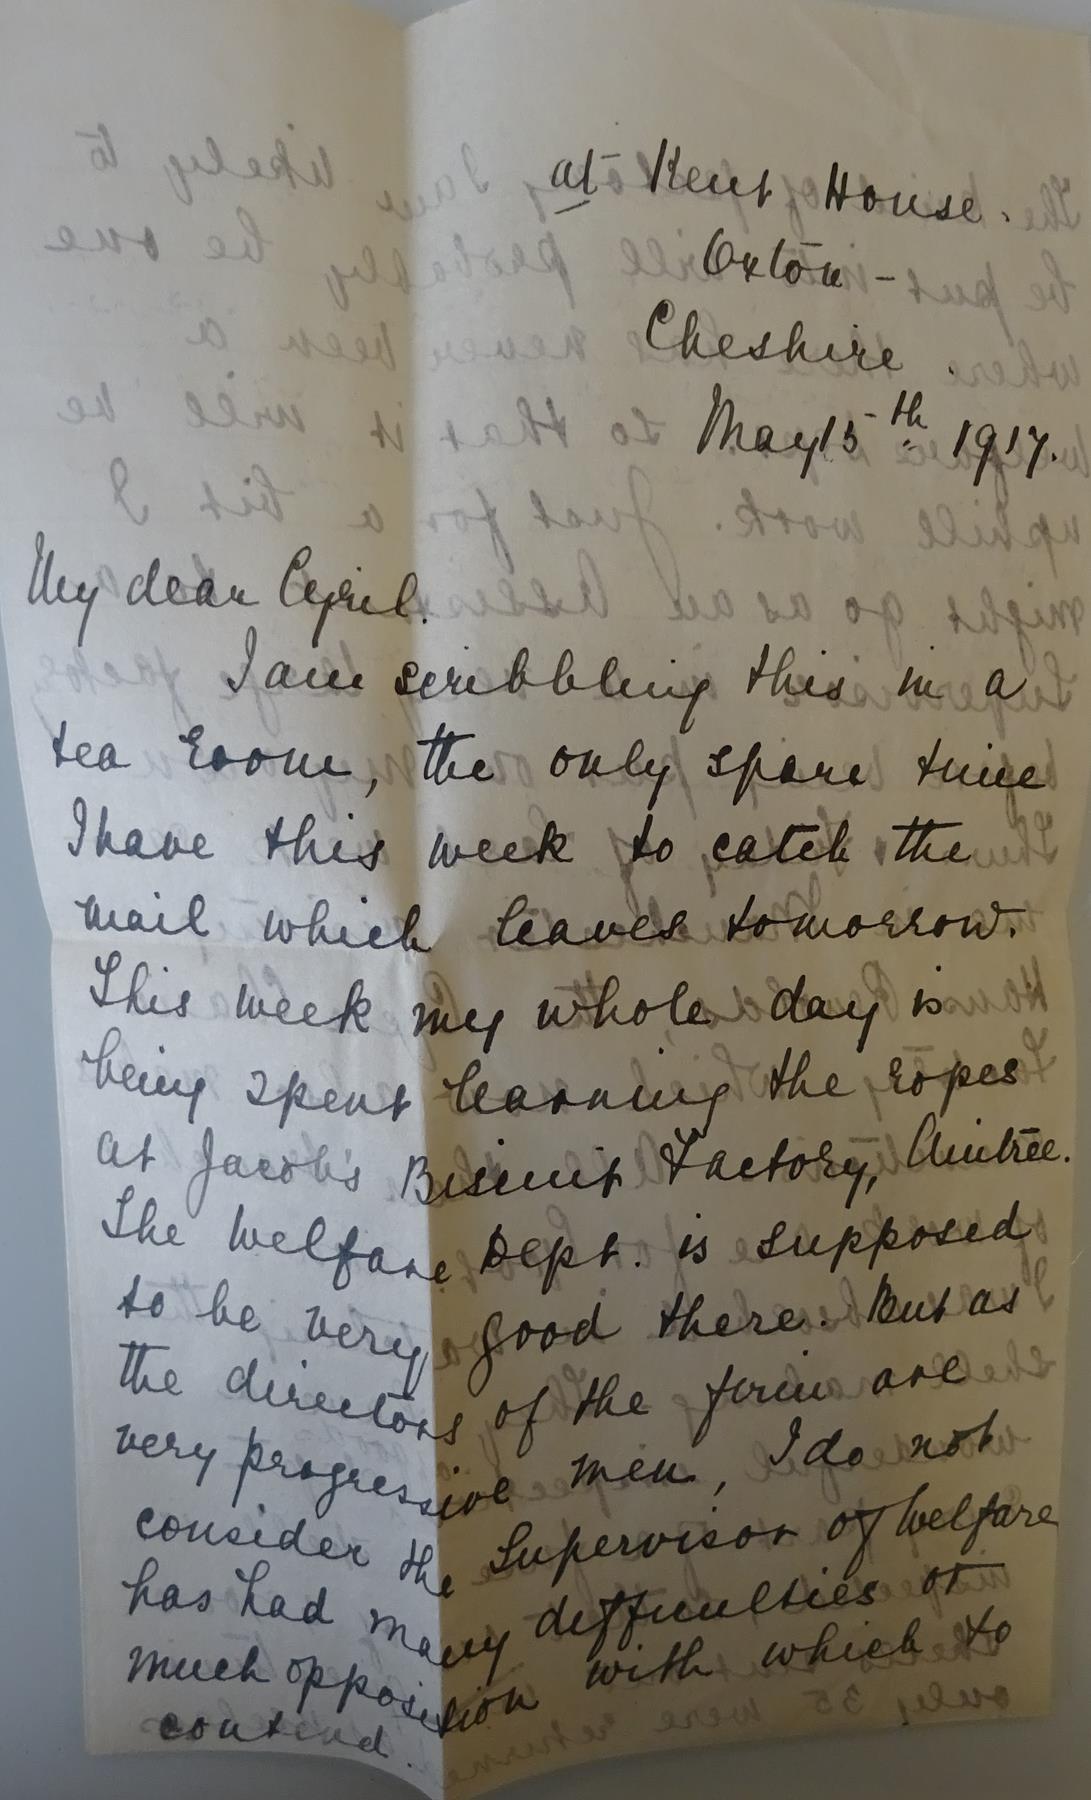 at Kent House.
Oxton -
Cheshire.
May 15th 1917.
My dear Cyril.
I am scribbling this in a
tea room, the only spare time
I have this week to catch the
mail which leaves tomorrow.
This week my whole day is
being spent learning the ropes
at Jacob's Biscuit Factory, Aintree.
The Welfare Dept. is supposed
to be very good there. But as
the directors of the firm are
very progressive men, I do not
consider the Supervisor of Welfare
has had many difficulties or
much opposition with which to
contend.